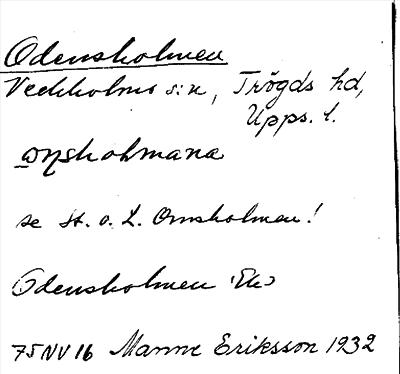 Odensholmen
Veckholms s:n, Trögds hd,
Upps. l.
se St. o. L. Ornsholmen!
Odensholmen
75 NV 16 Manne Eriksson 1932